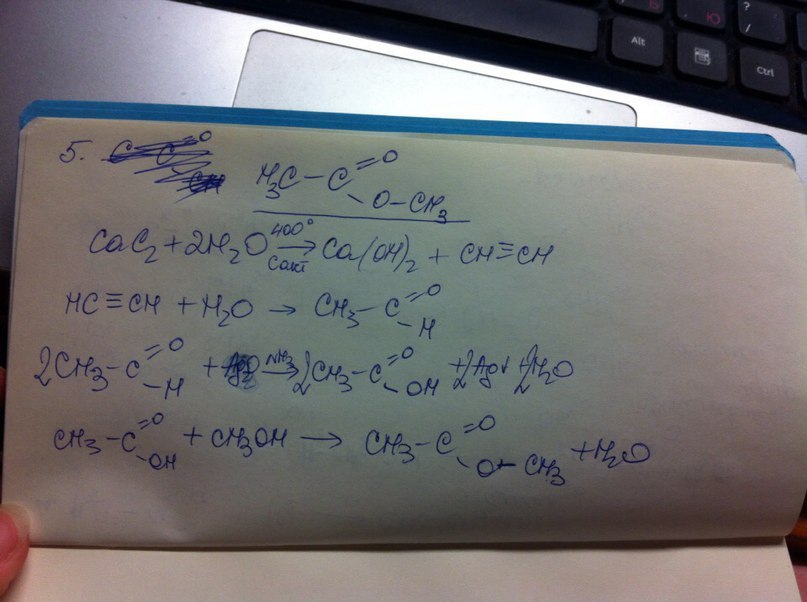 Alt
Ctrl
5. H₃C–C=O
O–CH₃
CaC₂ + 2H₂O 400° → Cакт Ca(OH)₂ + CH≡CH
HC≡CH + H₂O → CH₃–C=O
–H
2CH₃–C=O –H + NH₃ → 2CH₃–C=O –OH + 2Ag↓ + 2H₂O
CH₃–C=O –OH + CH₃OH → CH₃–C=O –O–CH₃ + H₂O